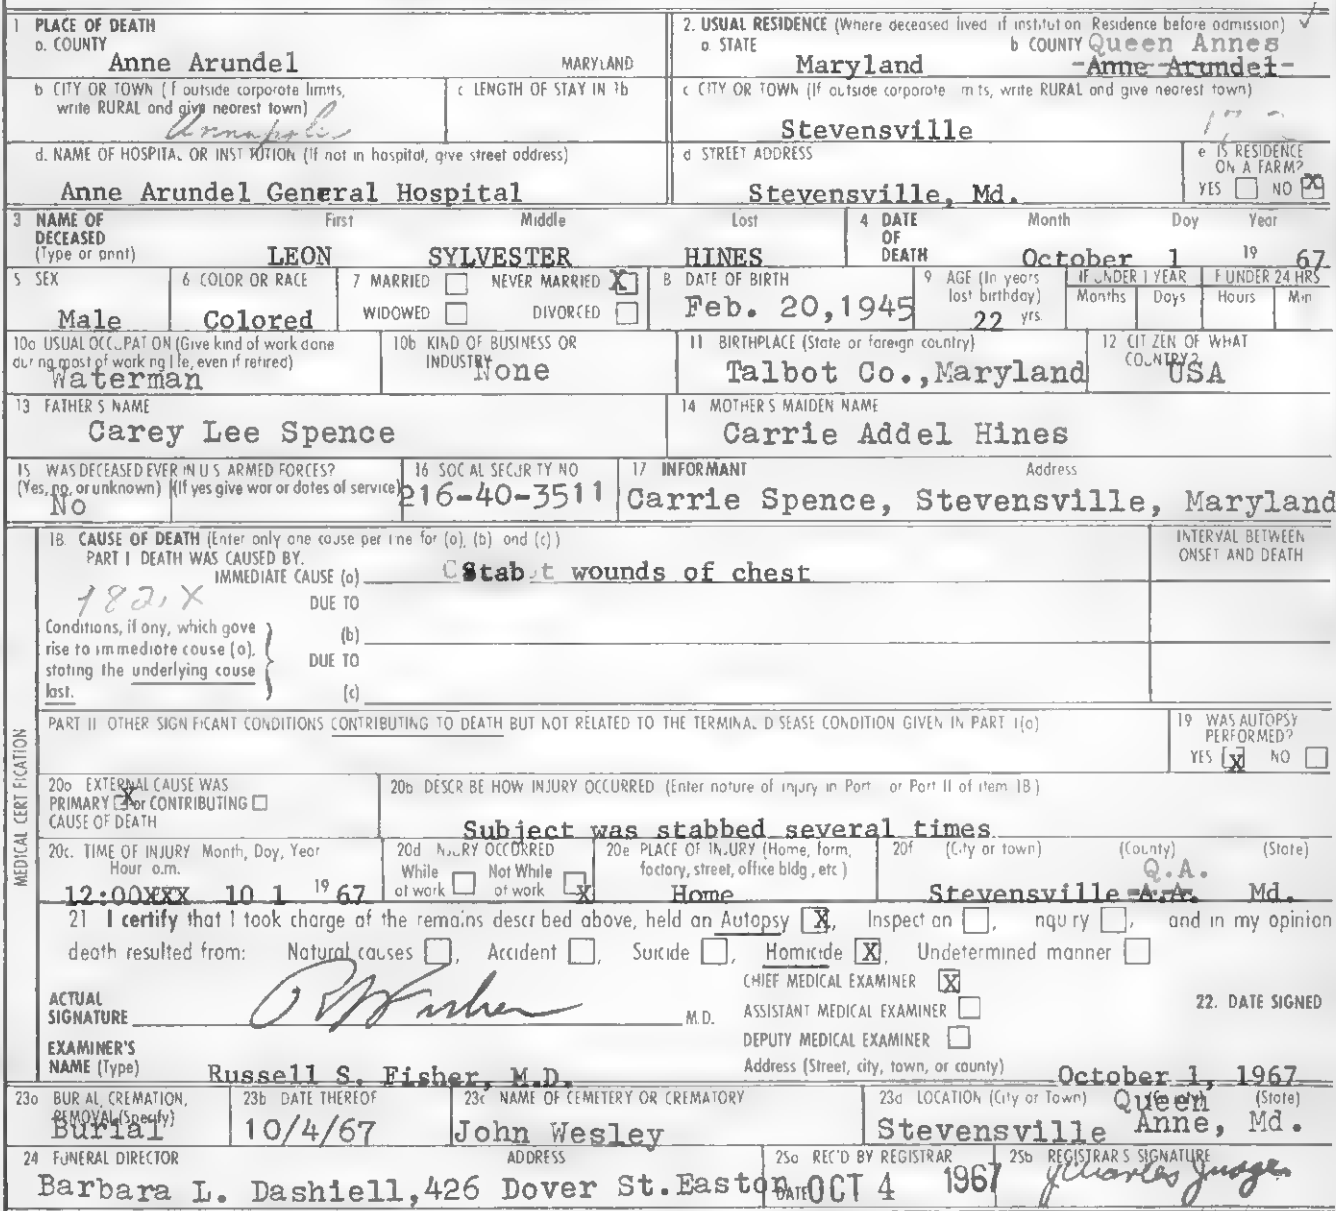 1 PLACE OF DEATH
a. COUNTY
Anne Arundel MARYLAND
2. USUAL RESIDENCE (Where deceased lived if institution Residence before admission)
a. STATE Maryland
b COUNTY Queen Annes
Anne Arundel
b CITY OR TOWN (If outside corporate limits, write RURAL and give nearest town)
Annapolis
c LENGTH OF STAY IN 1b
c CITY OR TOWN (If outside corporate limits, write RURAL and give nearest town)
Stevensville
d. NAME OF HOSPITAL OR INSTITUTION (If not in hospital, give street address)
Anne Arundel General Hospital
d STREET ADDRESS
Stevensville, Md.
e IS RESIDENCE ON A FARM?
YES NO X
3 NAME OF DECEASED (Type or print)
First Middle Last
LEON SYLVESTER HINES
4 DATE OF DEATH
Month Day Year
October 1 19 67
5 SEX
Male
6 COLOR OR RACE
Colored
7 MARRIED NEVER MARRIED X
WIDOWED DIVORCED
8 DATE OF BIRTH
Feb. 20,1945
9 AGE (In years last birthday)
22 yrs.
IF UNDER 1 YEAR
Months Days
IF UNDER 24 HRS
Hours Min
10a USUAL OCCUPATION (Give kind of work done during most of working life, even if retired)
Waterman
10b KIND OF BUSINESS OR INDUSTRY
None
11 BIRTHPLACE (State or foreign country)
Talbot Co.,Maryland
12 CITIZEN OF WHAT COUNTRY?
USA
13 FATHER'S NAME
Carey Lee Spence
14 MOTHER'S MAIDEN NAME
Carrie Addel Hines
15 WAS DECEASED EVER IN U S ARMED FORCES?
(Yes, no, or unknown) (If yes give war or dates of service)
No
16 SOCIAL SECURITY NO
216-40-3511
17 INFORMANT Address
Carrie Spence, Stevensville, Maryland
MEDICAL CERTIFICATION
18. CAUSE OF DEATH (Enter only one cause per line for (a), (b) and (c))
PART I DEATH WAS CAUSED BY.
IMMEDIATE CAUSE (a) Stab wounds of chest
INTERVAL BETWEEN ONSET AND DEATH
982.X
Conditions, if any, which gave rise to immediate cause (a), stating the underlying cause last.
DUE TO
(b)
DUE TO
(c)
PART II OTHER SIGNIFICANT CONDITIONS CONTRIBUTING TO DEATH BUT NOT RELATED TO THE TERMINAL DISEASE CONDITION GIVEN IN PART I(a)
19 WAS AUTOPSY PERFORMED?
YES X NO
20a EXTERNAL CAUSE WAS
PRIMARY X or CONTRIBUTING
CAUSE OF DEATH
20b DESCRIBE HOW INJURY OCCURRED (Enter nature of injury in Part I or Part II of item 18)
Subject was stabbed several times
20c. TIME OF INJURY Month, Day, Year
Hour a.m.
12:00XXX 10 1 19 67
20d INJURY OCCURRED
While at work Not While at work X
20e PLACE OF INJURY (Home, farm, factory, street, office bldg, etc)
Home
20f (City or town) (County) (State)
Q.A.
Stevensville A.A. Md.
21 I certify that I took charge of the remains described above, held an Autopsy X, Inspection, Inquiry, and in my opinion
death resulted from: Natural causes, Accident, Suicide, Homicide X, Undetermined manner
CHIEF MEDICAL EXAMINER X
ACTUAL SIGNATURE R S Fisher M.D.
ASSISTANT MEDICAL EXAMINER
22. DATE SIGNED
DEPUTY MEDICAL EXAMINER
EXAMINER'S NAME (Type) Russell S. Fisher, M.D.
Address (Street, city, town, or county)
October 1, 1967
23a BURIAL, CREMATION, REMOVAL (Specify)
Burial
23b DATE THEREOF
10/4/67
23c NAME OF CEMETERY OR CREMATORY
John Wesley
23d LOCATION (City or Town) (County) (State)
Stevensville Queen Anne, Md.
24 FUNERAL DIRECTOR ADDRESS
Barbara L. Dashiell,426 Dover St.Easton
25a REC'D BY REGISTRAR
DATE OCT 4 1967
25b REGISTRAR'S SIGNATURE
J Charles Judge